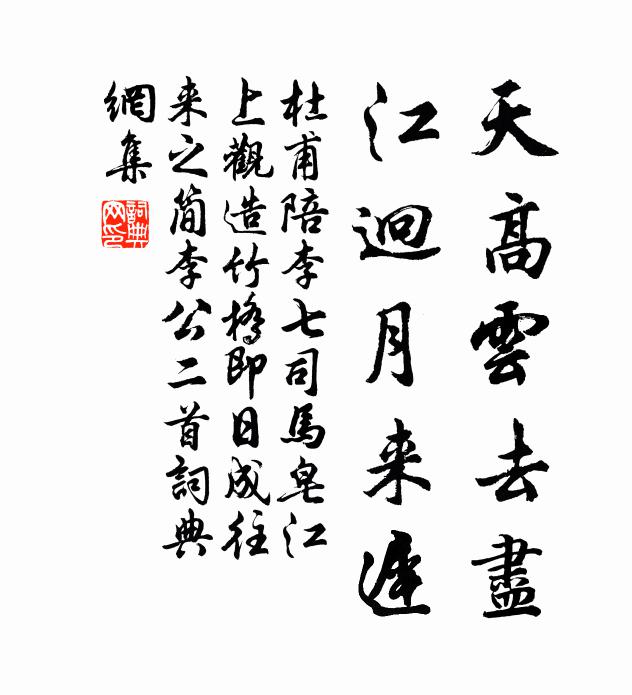 天高雲去盡
江迥月来遲
杜甫陪李七司馬皂江
上觀造竹橋即日成往
来之简李公二首詞典
網集
詞典網印